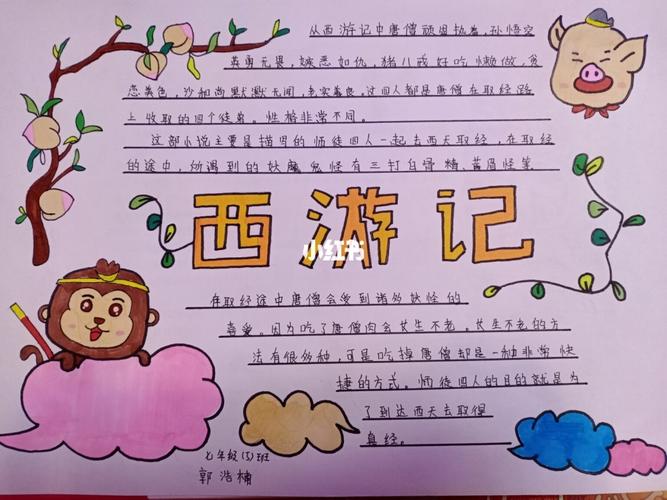 从西游记中唐僧顽固执着,孙悟空
英勇无畏、嫉恶如仇,猪八戒好吃懒做,贪
恋美色,沙和尚默默无闻,老实善良。这四人都是唐僧在取经路
上收取的四个徒弟。性格非常不同。
这部小说主要是描男的师徒四人一起去西天取经,在取经
的途中,所遇到的妖魔鬼怪有三打白骨精、黄眉怪等
西游记
小红书
在取经途中唐僧会受到诸多妖怪的
喜爱。因为吃了唐僧肉会长生不老。长生不老的方
法有很多种,可是吃掉唐僧却是一种非常快
捷的方式。师徒四人的目的就是为
了到达西天去取得
真经。
七年级(5)班
郭浩楠